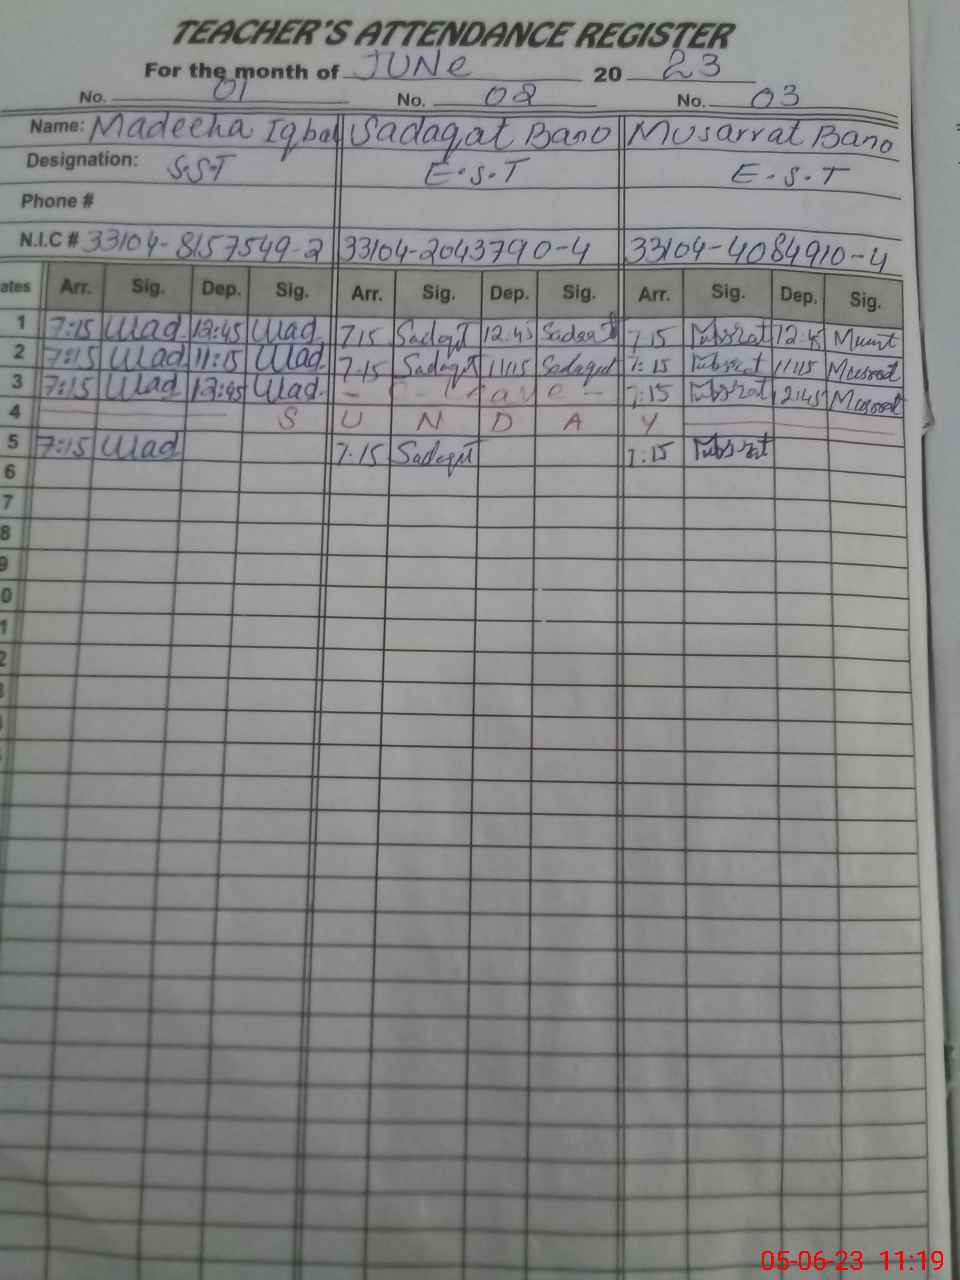 TEACHER'S ATTENDANCE REGISTER
For the month of JUNe 20 23
No. 01 No. 02 No. 03
Name: Madeeha Iqbal Sadaqat Bano Musarrat Bano
Designation: S.S.T E.S.T E.S.T
Phone #
N.I.C # 33104-8157549-2 33104-2043790-4 33104-4084910-4
ates Arr. Sig. Dep. Sig. Arr. Sig. Dep. Sig. Arr. Sig. Dep. Sig.
1 7:15 12:45 7.15 Sadaqat 12:45 Sadaqat 7.15 12:45
2 7:15 11:15 7.15 Sadaqat 11:15 Sadaqat 7:15 11:15 Musrat
3 7:15 12:45 - C-Leave - 7:15 12:45 Musrat
4 S U N D A Y
5 7:15 7.15 Sadaqat 7:15
6
7
8
9
0
1
2
3
05-06-23 11:19